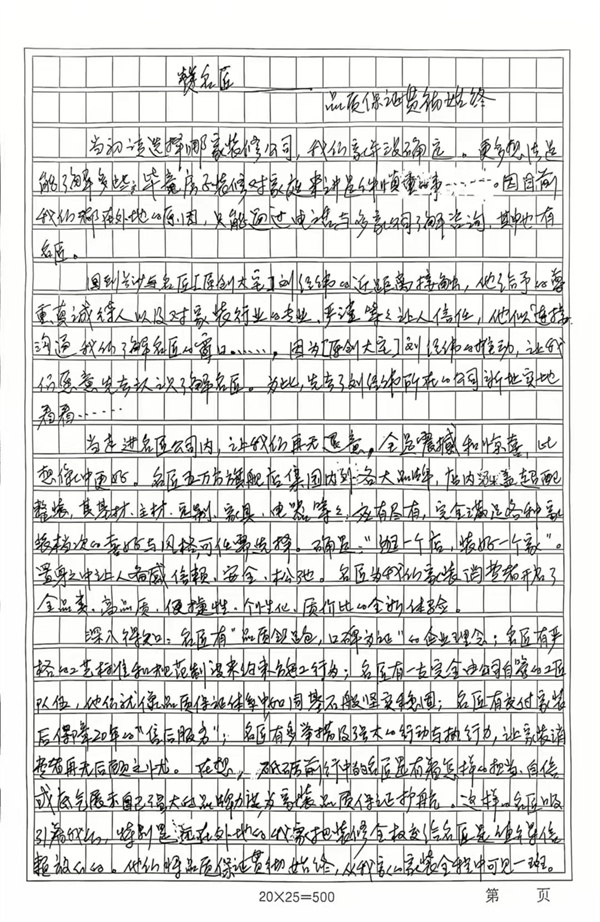 赞名匠
品质保证贯彻始终
当初该选择哪家装修公司，我们家并没确定。更多想法是
能了解多些，毕竟房子装修对家庭来讲是件慎重的事……。因目前
我们都在外地的原因，只能通过电话与多家公司了解咨询，其中也有
名匠。
回到长沙与名匠[原创大宅]刘经纬的近距离接触，他给予的尊
重真诚待人以及对家装行业的专业、严谨等等让人信任，他似连接
沟通我们了解名匠的窗口……，因为[原创大宅]刘经纬的推动，让我
们愿意先去认识了解名匠。为此，先去了刘经纬所在的公司新址实地
看看……
当走进名匠公司内，让我们再无退意，全是震撼和惊喜，比
想像中更好。名匠五万方旗舰店集国内外各大品牌，店内涵盖超配
整装，其基材、主材、定制、家具、电器等等，应有尽有，完全满足各种家
装档次的喜好与风格可任需选择。确是：“逛一个店，装好一个家”。
置身之中让人备感信赖、安全、松弛。名匠为我们家装消费者开启了
全品类、高品质、便捷性、个性化、质价比的全新体验。
深入得知：名匠有“品质铝是包，口碑为证”的企业理念；名匠有严
格的工艺标准和规范制度来约束施工行为；名匠有一支完全由公司自营的工匠
队伍，他们就像品质保证体系中的同基石般坚实牢固；名匠有交付家装
后保障20年的“售后服务”；名匠有多举措及强大的行动与执行力，让家装消
费者再无后顾之忧。在想，砥砺前行中的名匠是有着怎样的担当、自信
或底气展示自己强大的品牌力度为家装品质保证护航。这样的名匠吸
引着我们，特别是远在外地的我家把装修全权交给名匠是值得信
赖放心的。他们将品质保证贯彻始终，从我家的家装全程中可见一斑。
20×25=500
第 页